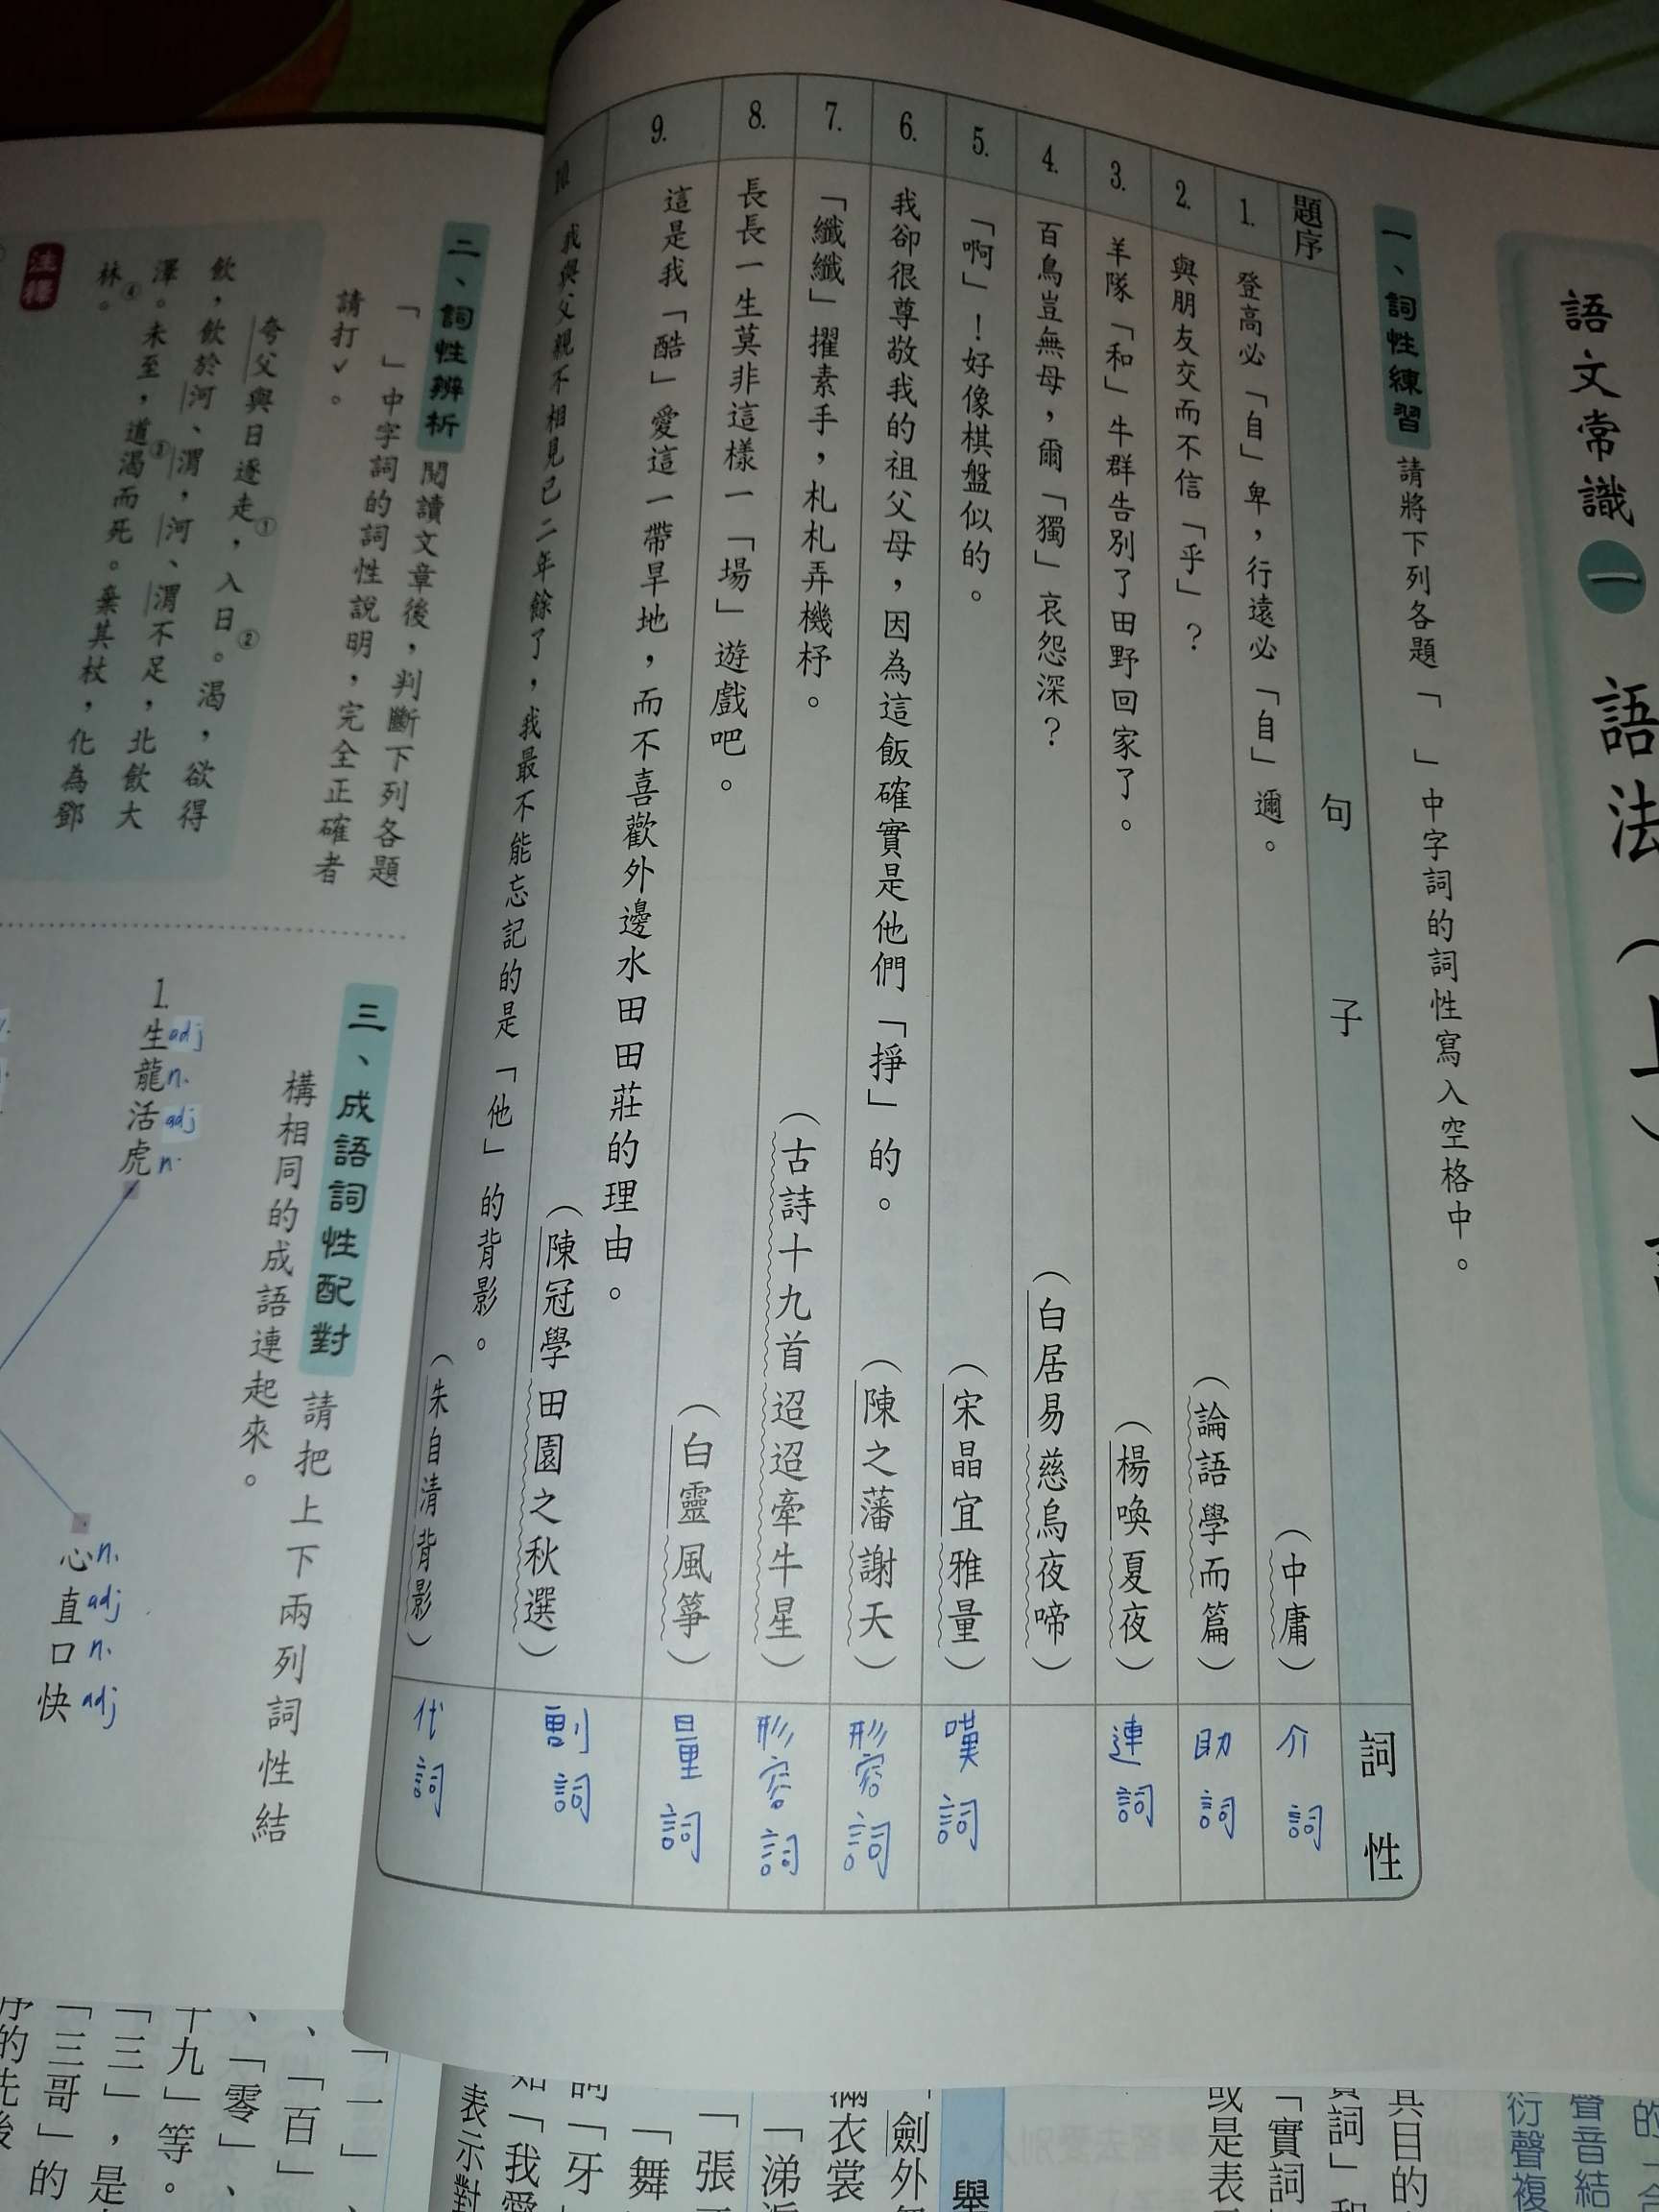 語文常識 一 語法（上）
一、詞性練習 請將下列各題「　」中字詞的詞性寫入空格中。
題序 句子 詞性
1. 登高必「自」卑，行遠必「自」邇。（中庸） 介詞
2. 與朋友交而不信「乎」？（論語學而篇） 助詞
3. 羊隊「和」牛群告別了田野回家了。（楊喚夏夜） 連詞
4. 百鳥豈無母，爾「獨」哀怨深？（白居易慈烏夜啼）
5. 「啊」！好像棋盤似的。（宋晶宜雅量） 嘆詞
6. 我卻很尊敬我的祖父母，因為這飯確實是他們「掙」的。（陳之藩謝天） 形容詞
7. 「纖纖」擢素手，札札弄機杼。（古詩十九首迢迢牽牛星） 形容詞
8. 長長一生莫非這樣一「場」遊戲吧。（白靈風箏） 量詞
9. 這是我「酷」愛這一帶旱地，而不喜歡外邊水田田莊的理由。
（陳冠學田園之秋選） 副詞
10. 我與父親不相見已二年餘了，我最不能忘記的是「他」的背影。
（朱自清背影） 代詞
二、詞性辨析 閱讀文章後，判斷下列各題
「　」中字詞的詞性說明，完全正確者
請打✓。
夸父與日逐走①，入日②。渴，欲得
飲，飲於河、渭，河、渭不足，北飲大
澤。未至，道渴③而死。棄其杖，化為鄧
林④。
注釋
三、成語詞性配對 請把上下兩列詞性結
構相同的成語連起來。
1. 生adj龍n.活adj虎n.
心n.直adj口n.快adj
其目的
「實詞」
或是表
舉
「劍外
衣裳
「涕
「張
「舞
「牙
如「我愛
表示對
「一」
、「百」
、「零」、
十九」等。
「三」，是
「三哥」的
序的先後
聲音結
衍聲複